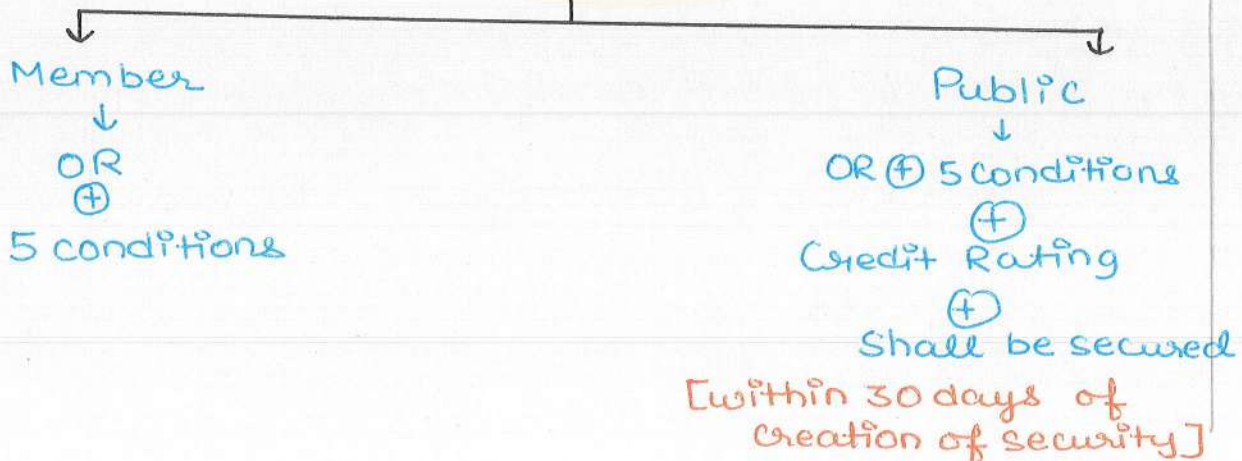 Member
↓
OR
⊕
5 conditions
Public
↓
OR ⊕ 5 conditions
⊕
Credit Rating
⊕
Shall be secured
[within 30 days of
creation of security]